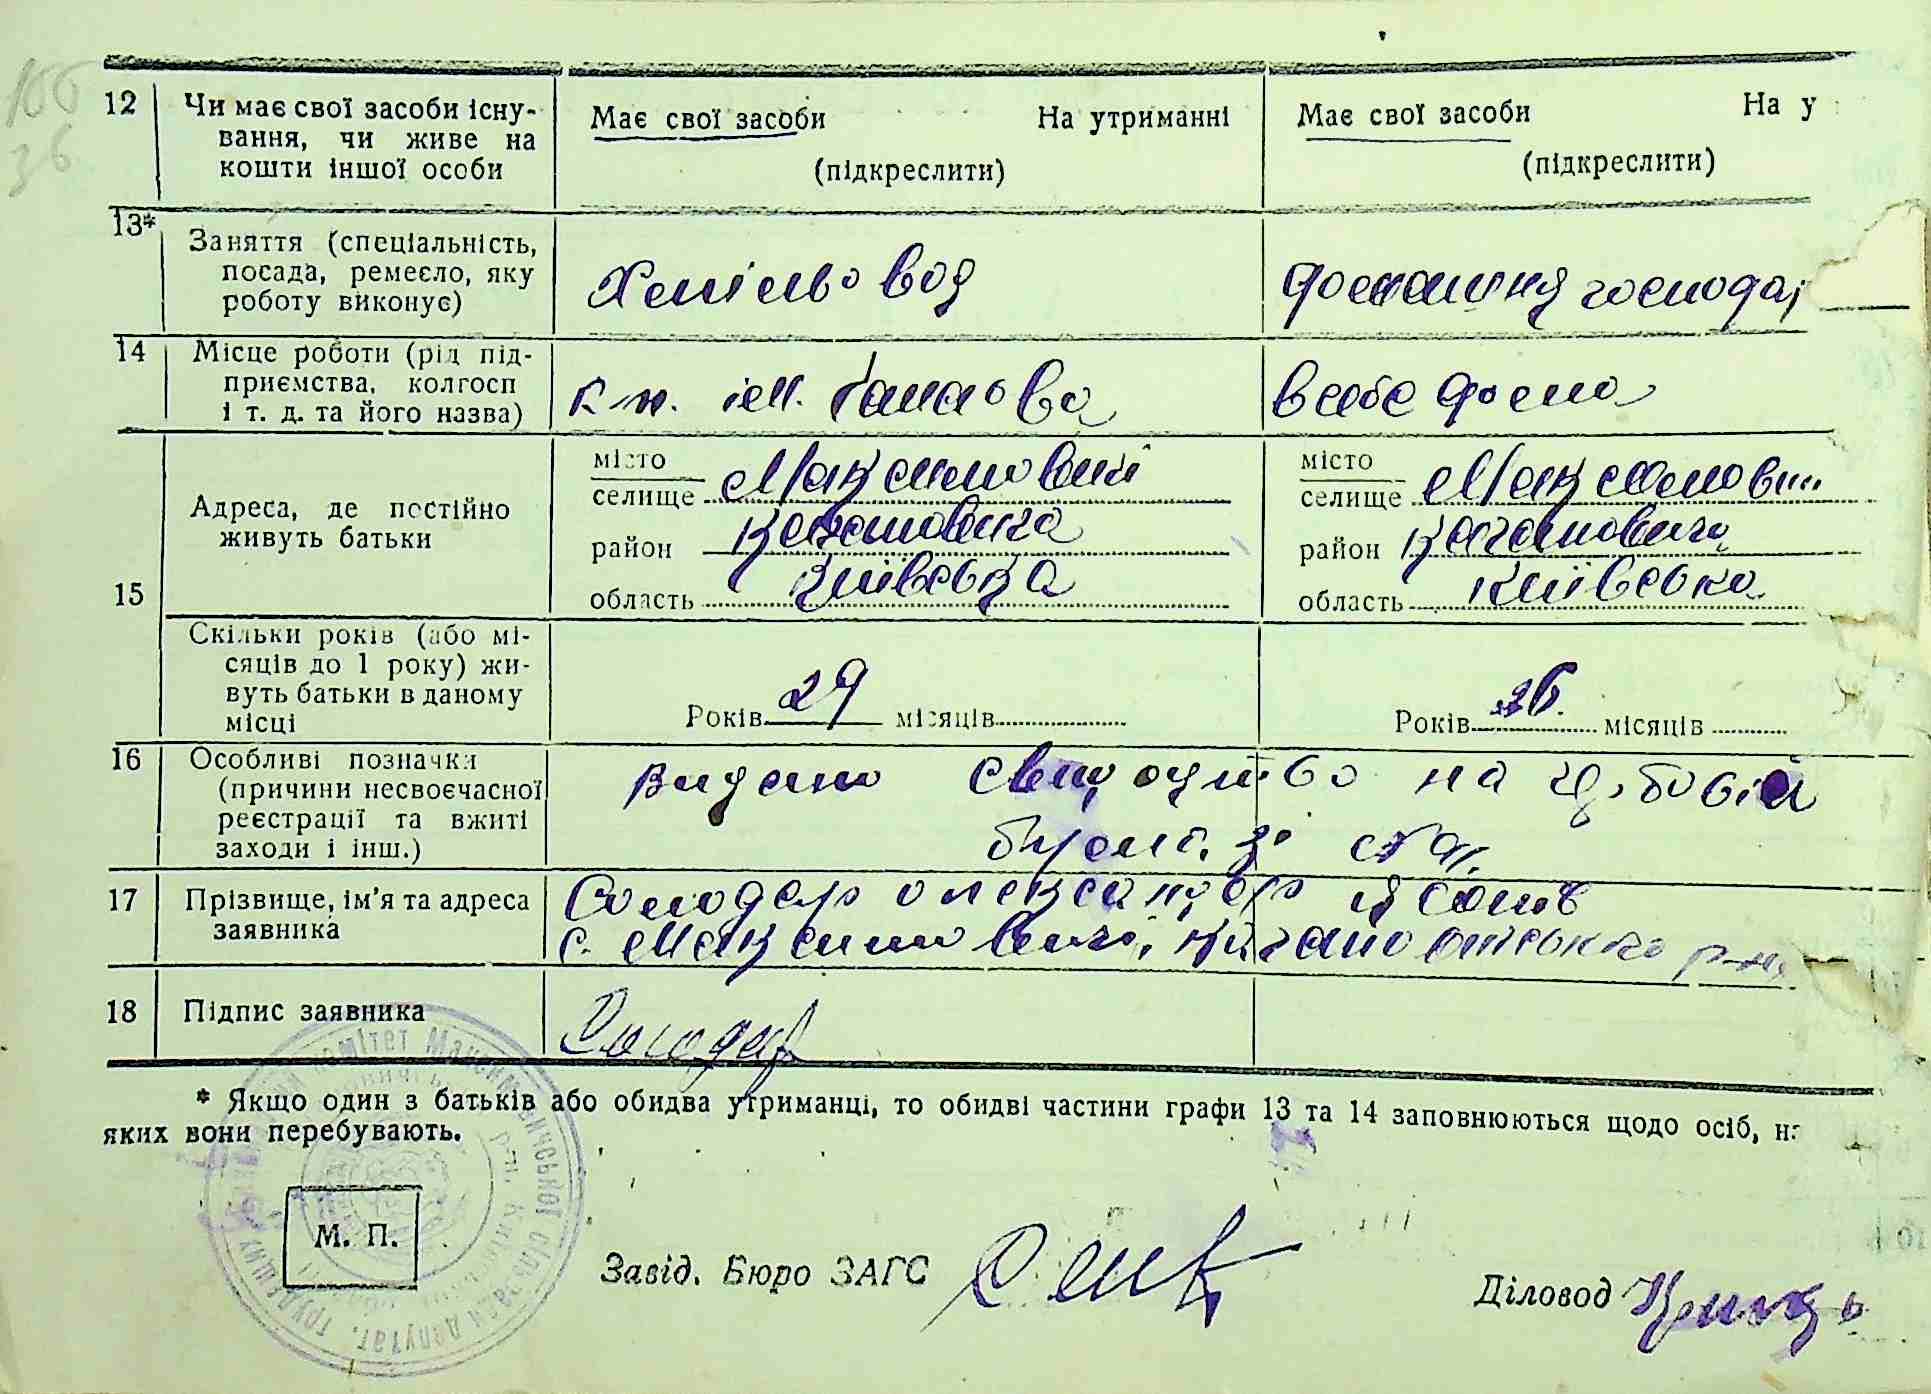 12 Чи має свої засоби існу-
вання, чи живе на
кошти іншої особи
Має свої засоби На утриманні
(підкреслити)
Має свої засоби На у
(підкреслити)
13* Заняття (спеціальність,
посада, ремесло, яку
роботу виконує)
Хмільовод
домашня господар
14 Місце роботи (рід під-
приємства, колгосп
і т. д. та його назва)
к-п. ім.
в себе дома
15 Адреса, де постійно
живуть батьки
місто
селище Максимовичі
район Кагановича
область Київська
місто
селище Максимович
район Кагановича
область Київська
Скільки років (або мі-
сяців до 1 року) жи-
вуть батьки в даному
місці
Років 29 місяців
Років 26. місяців
16 Особливі позначки
(причини несвоєчасної
реєстрації та вжиті
заходи і інш.)
Видано свидоцтво на гербовій
17 Прізвище, ім'я та адреса
заявника
Солодар Олександр
с. Максимовичі, Кагановицького р-ну
18 Підпис заявника
Солодар
* Якщо один з батьків або обидва утриманці, то обидві частини графи 13 та 14 заповнюються щодо осіб, н
яких вони перебувають.
М. П.
Завід. Бюро ЗАГС
Діловод